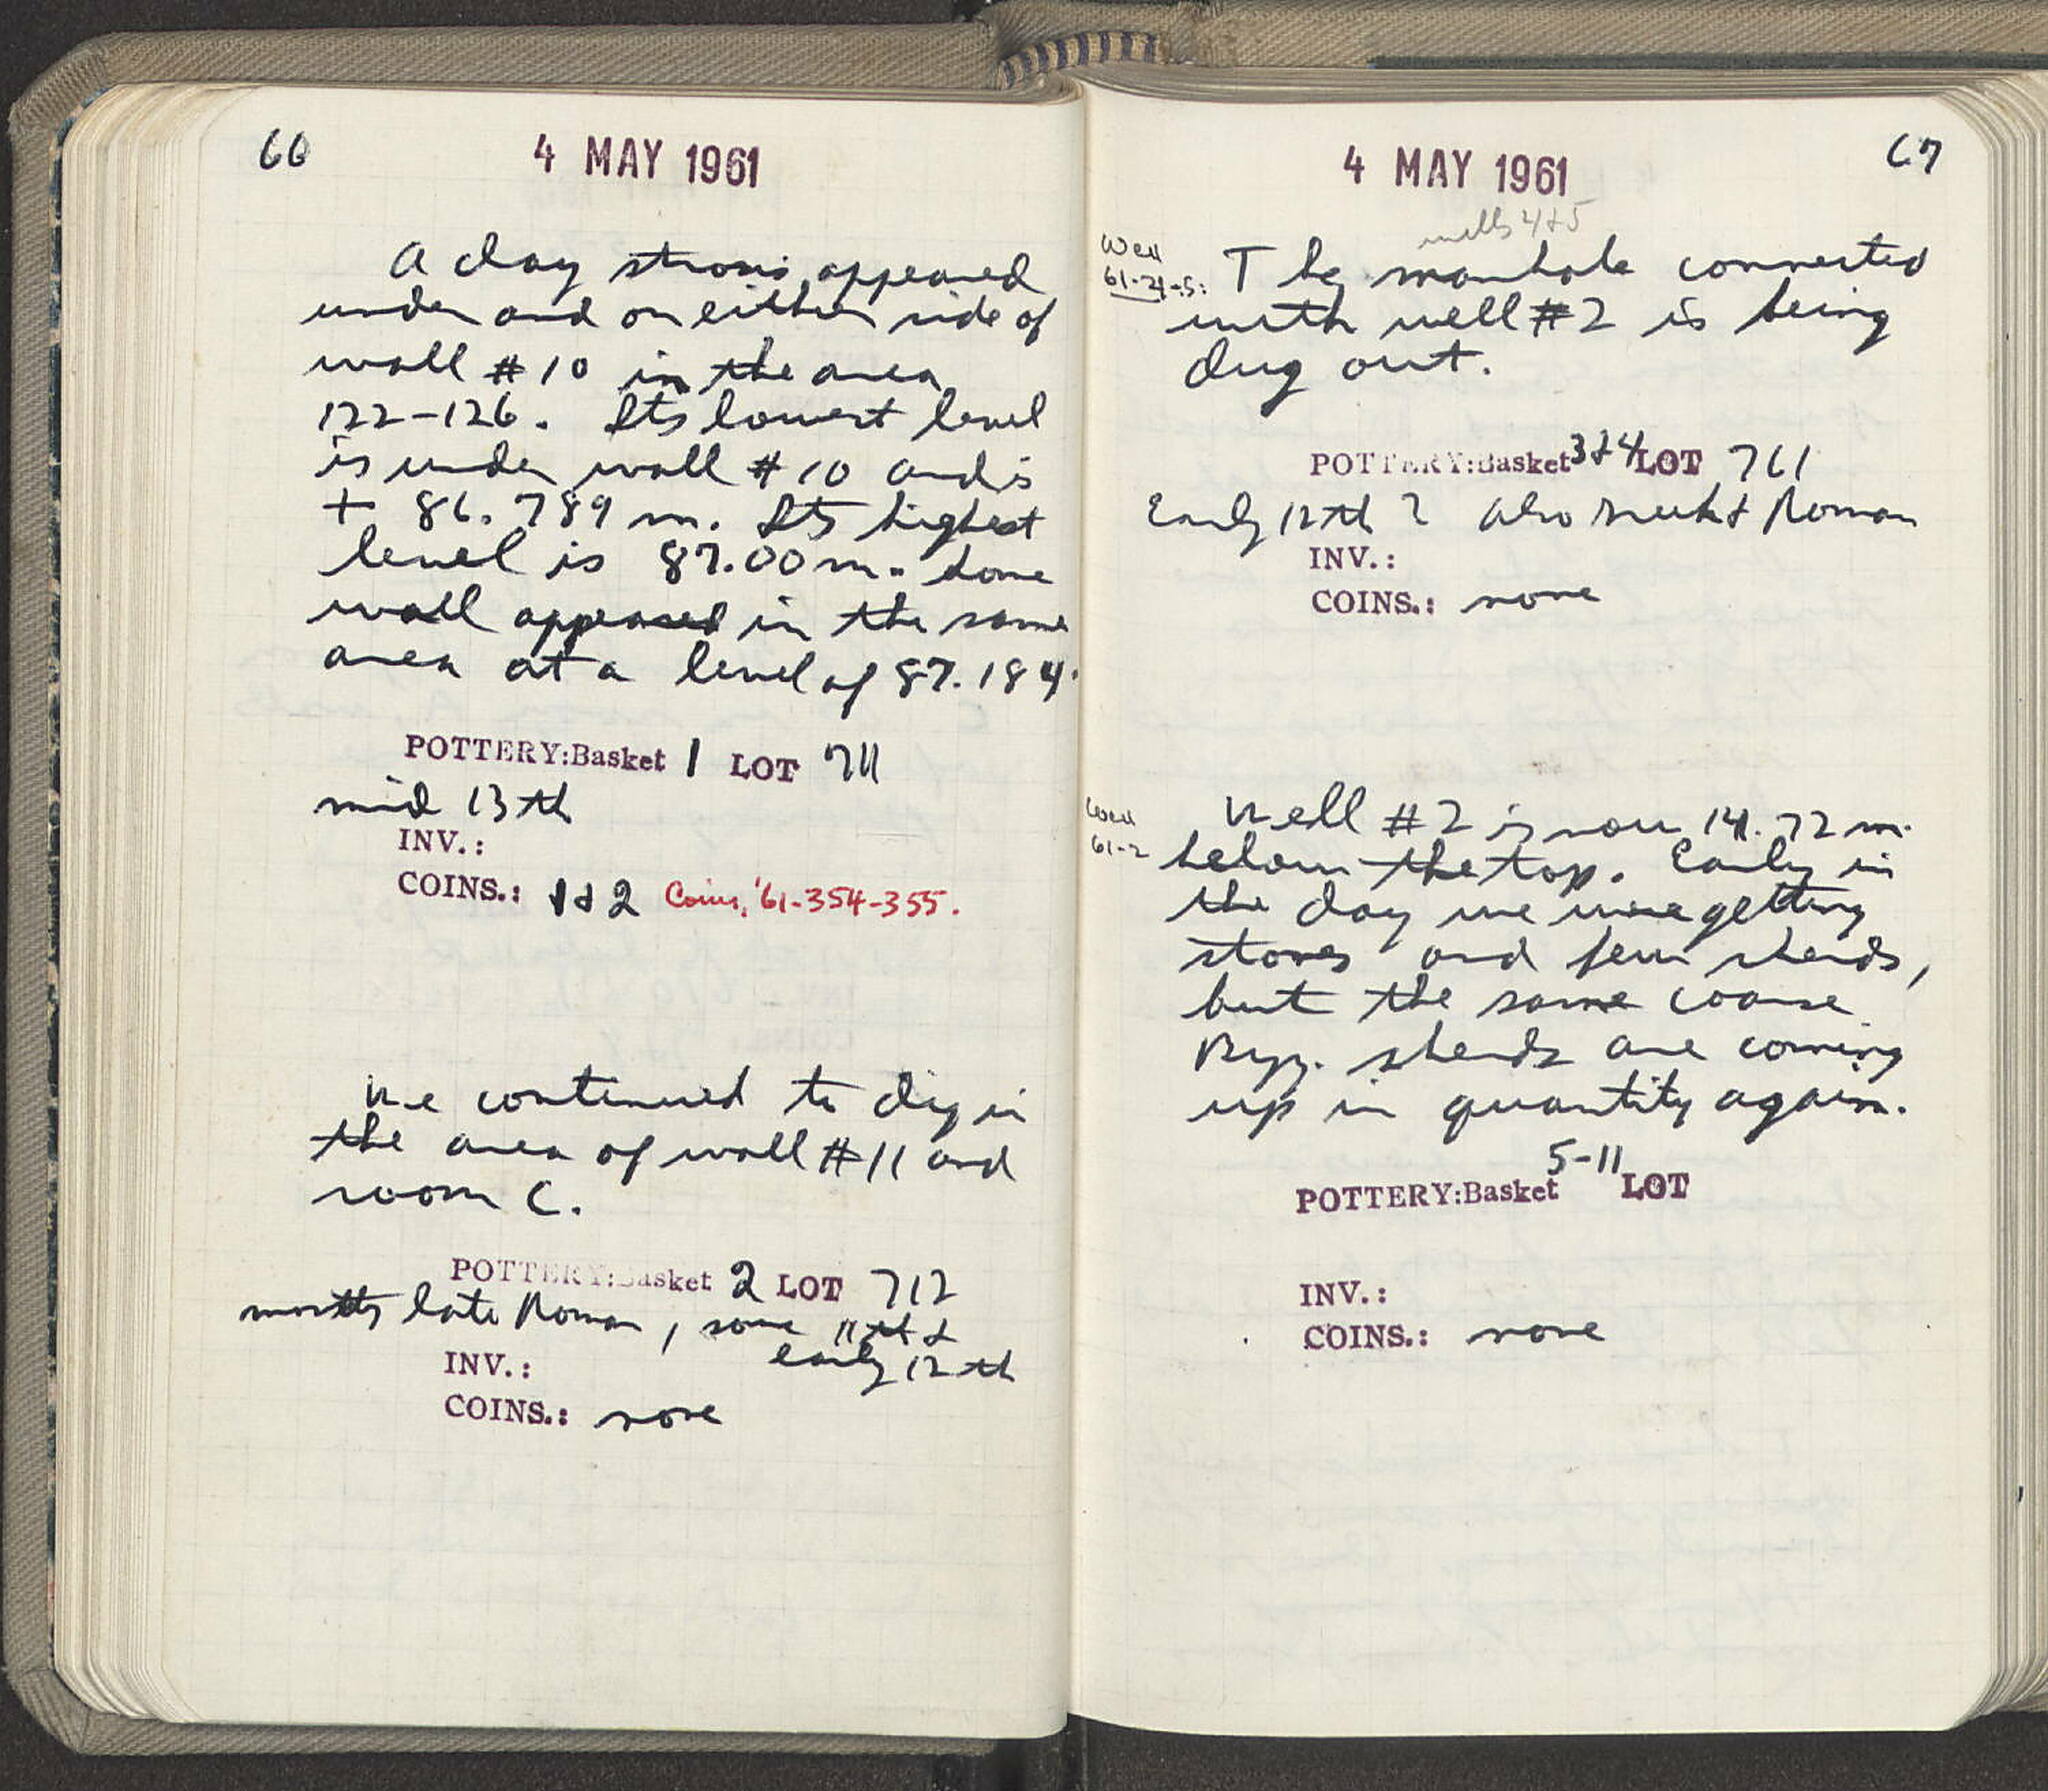 66
4 MAY 1961
A clay stroses appeared
under and on either side of
wall #10 in the area
122-126. Its lowest level
is under wall #10 and is
+ 86.789 m. Its highest
level is 87.00 m. Some
wall appeared in the same
area at a level of 87.184.
POTTERY:Basket 1 LOT 711
mid 13th
INV.:
COINS.: 1 & 2 Coins, '61-354-355.
We continued to dig in
the area of wall #11 and
room C.
POTTERY:Basket 2 LOT 712
mostly late Roman, some 11th &
early 12th
INV.:
COINS.: none
67
4 MAY 1961
wells 4+5
Well
61-4-5:
The manhole connected
with well #2 is being
dug out.
POTTERY:Basket 3 & 4 LOT 761
Early 12th? Also Greek & Roman
INV.:
COINS.: none
Well
61-2
Well #2 is now 14.72 m.
below the top. Early in
the day we were getting
stones and few sherds,
but the same coarse
Byz. sherds are coming
up in quantity again.
POTTERY:Basket 5-11 LOT
INV.:
COINS.: none